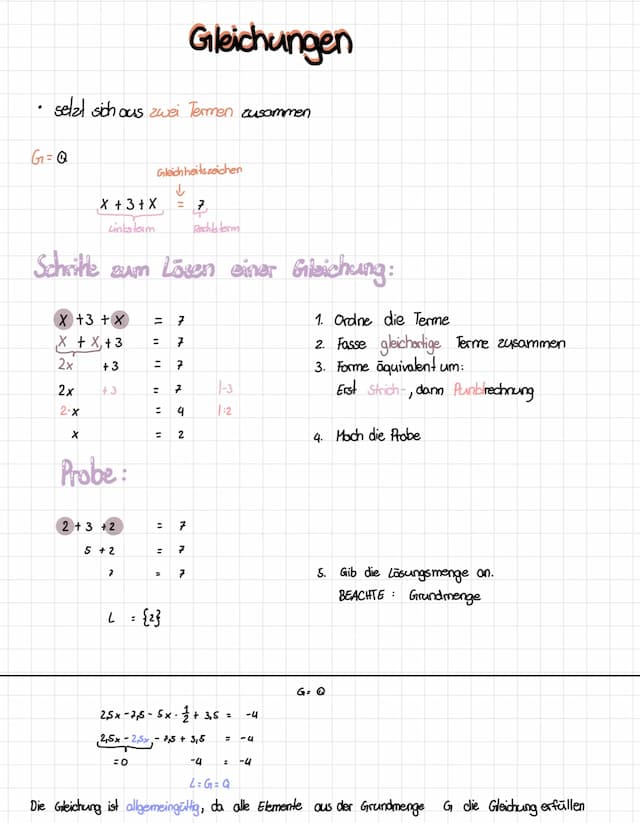 Gleichungen
• setzt sich aus zwei Termen zusammen
G = Q
Gleichheitszeichen
↓
x + 3 + x = 7
Linksterm Rechtsterm
Schritte zum Lösen einer Gleichung:
x + 3 + x = 7
x + x + 3 = 7
2x + 3 = 7
2x + 3 = 7 |-3
2·x = 4 |:2
x = 2
1. Ordne die Terme
2. Fasse gleichartige Terme zusammen
3. Forme äquivalent um:
Erst Strich-, dann Punktrechnung
4. Mach die Probe
Probe:
2 + 3 + 2 = 7
5 + 2 = 7
7 = 7
5. Gib die Lösungsmenge an.
BEACHTE: Grundmenge
L = {2}
G = Q
2,5x - 7,5 - 5x · 1/2 + 3,5 = -4
2,5x - 2,5x - 7,5 + 3,5 = -4
= 0 -4 = -4
L = G = Q
Die Gleichung ist allgemeingültig, da alle Elemente aus der Grundmenge G die Gleichung erfüllen